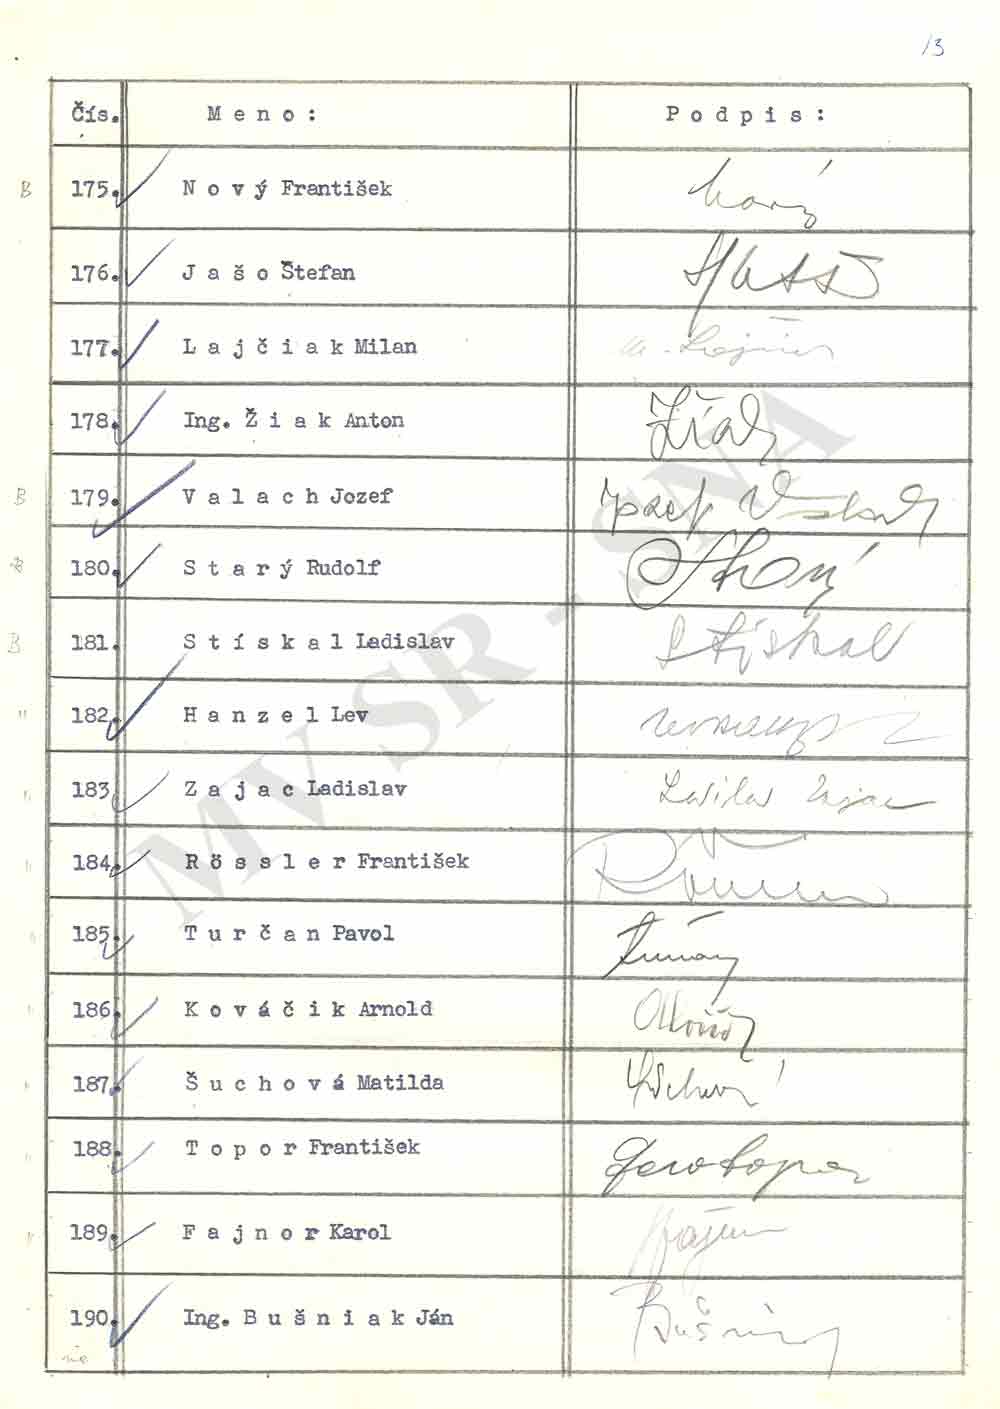 13
Čís. Meno: Podpis:
B 175. Nový František Nový
176. Jašo Štefan
177. Lajčiak Milan
178. Ing. Žiak Anton Žiak
B 179. Valach Jozef Jozef Valach
180. Starý Rudolf Starý
B 181. Stískal Ladislav Stískal
" 182. Hanzel Lev
" 183. Zajac Ladislav Ladislav Zajac
" 184. Rössler František
" 185. Turčan Pavol
" 186. Kováčik Arnold
" 187. Šuchová Matilda
" 188. Topor František
" 189. Fajnor Karol
190. Ing. Bušniak Ján Bušniak
nie
MV SR - SNA